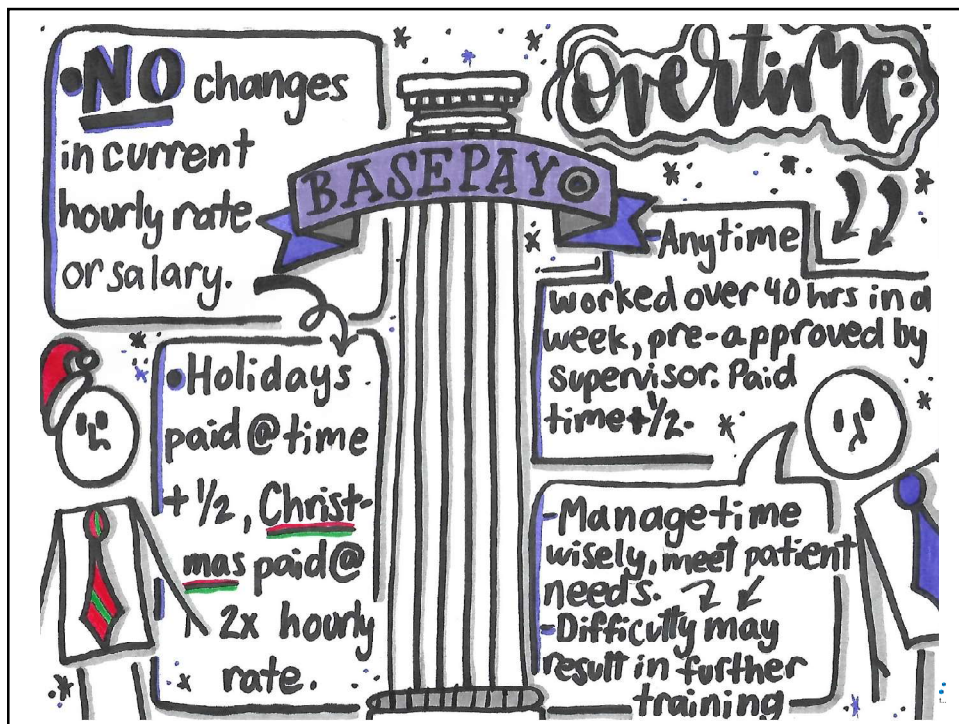 •NO changes
in current
hourly rate
or salary.
BASEPAY
•Holidays
paid @ time
+ 1/2, Christ-
mas paid @
2x hourly
rate.
Overtime:
-Anytime
worked over 40 hrs in a
week, pre-approved by
supervisor. Paid
time+1/2.
-Manage time
wisely, meet patient
needs.
-Difficulty may
result in further
training